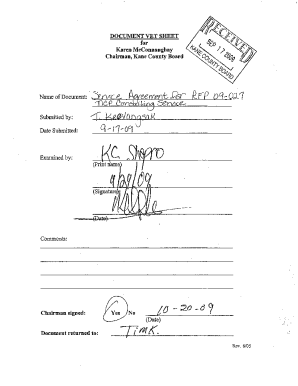 DOCUMENT VET SHEET
for
Karen McConnaughay
Chairman, Kane County Board
RECEIVED
SEP 17 2009
KANE COUNTY BOARD
Name of Document: Service Agreement for RFP 09-027
TICP Consulting Service
Submitted by: T. Keovongsak
Date Submitted: 9-17-09
Examined by: KC Shapro
(Print name)
9/29/09
(Signature)
(Date)
Comments:
Chairman signed: Yes No 10-20-09
(Date)
Document returned to: TimK.
Rev. 6/05